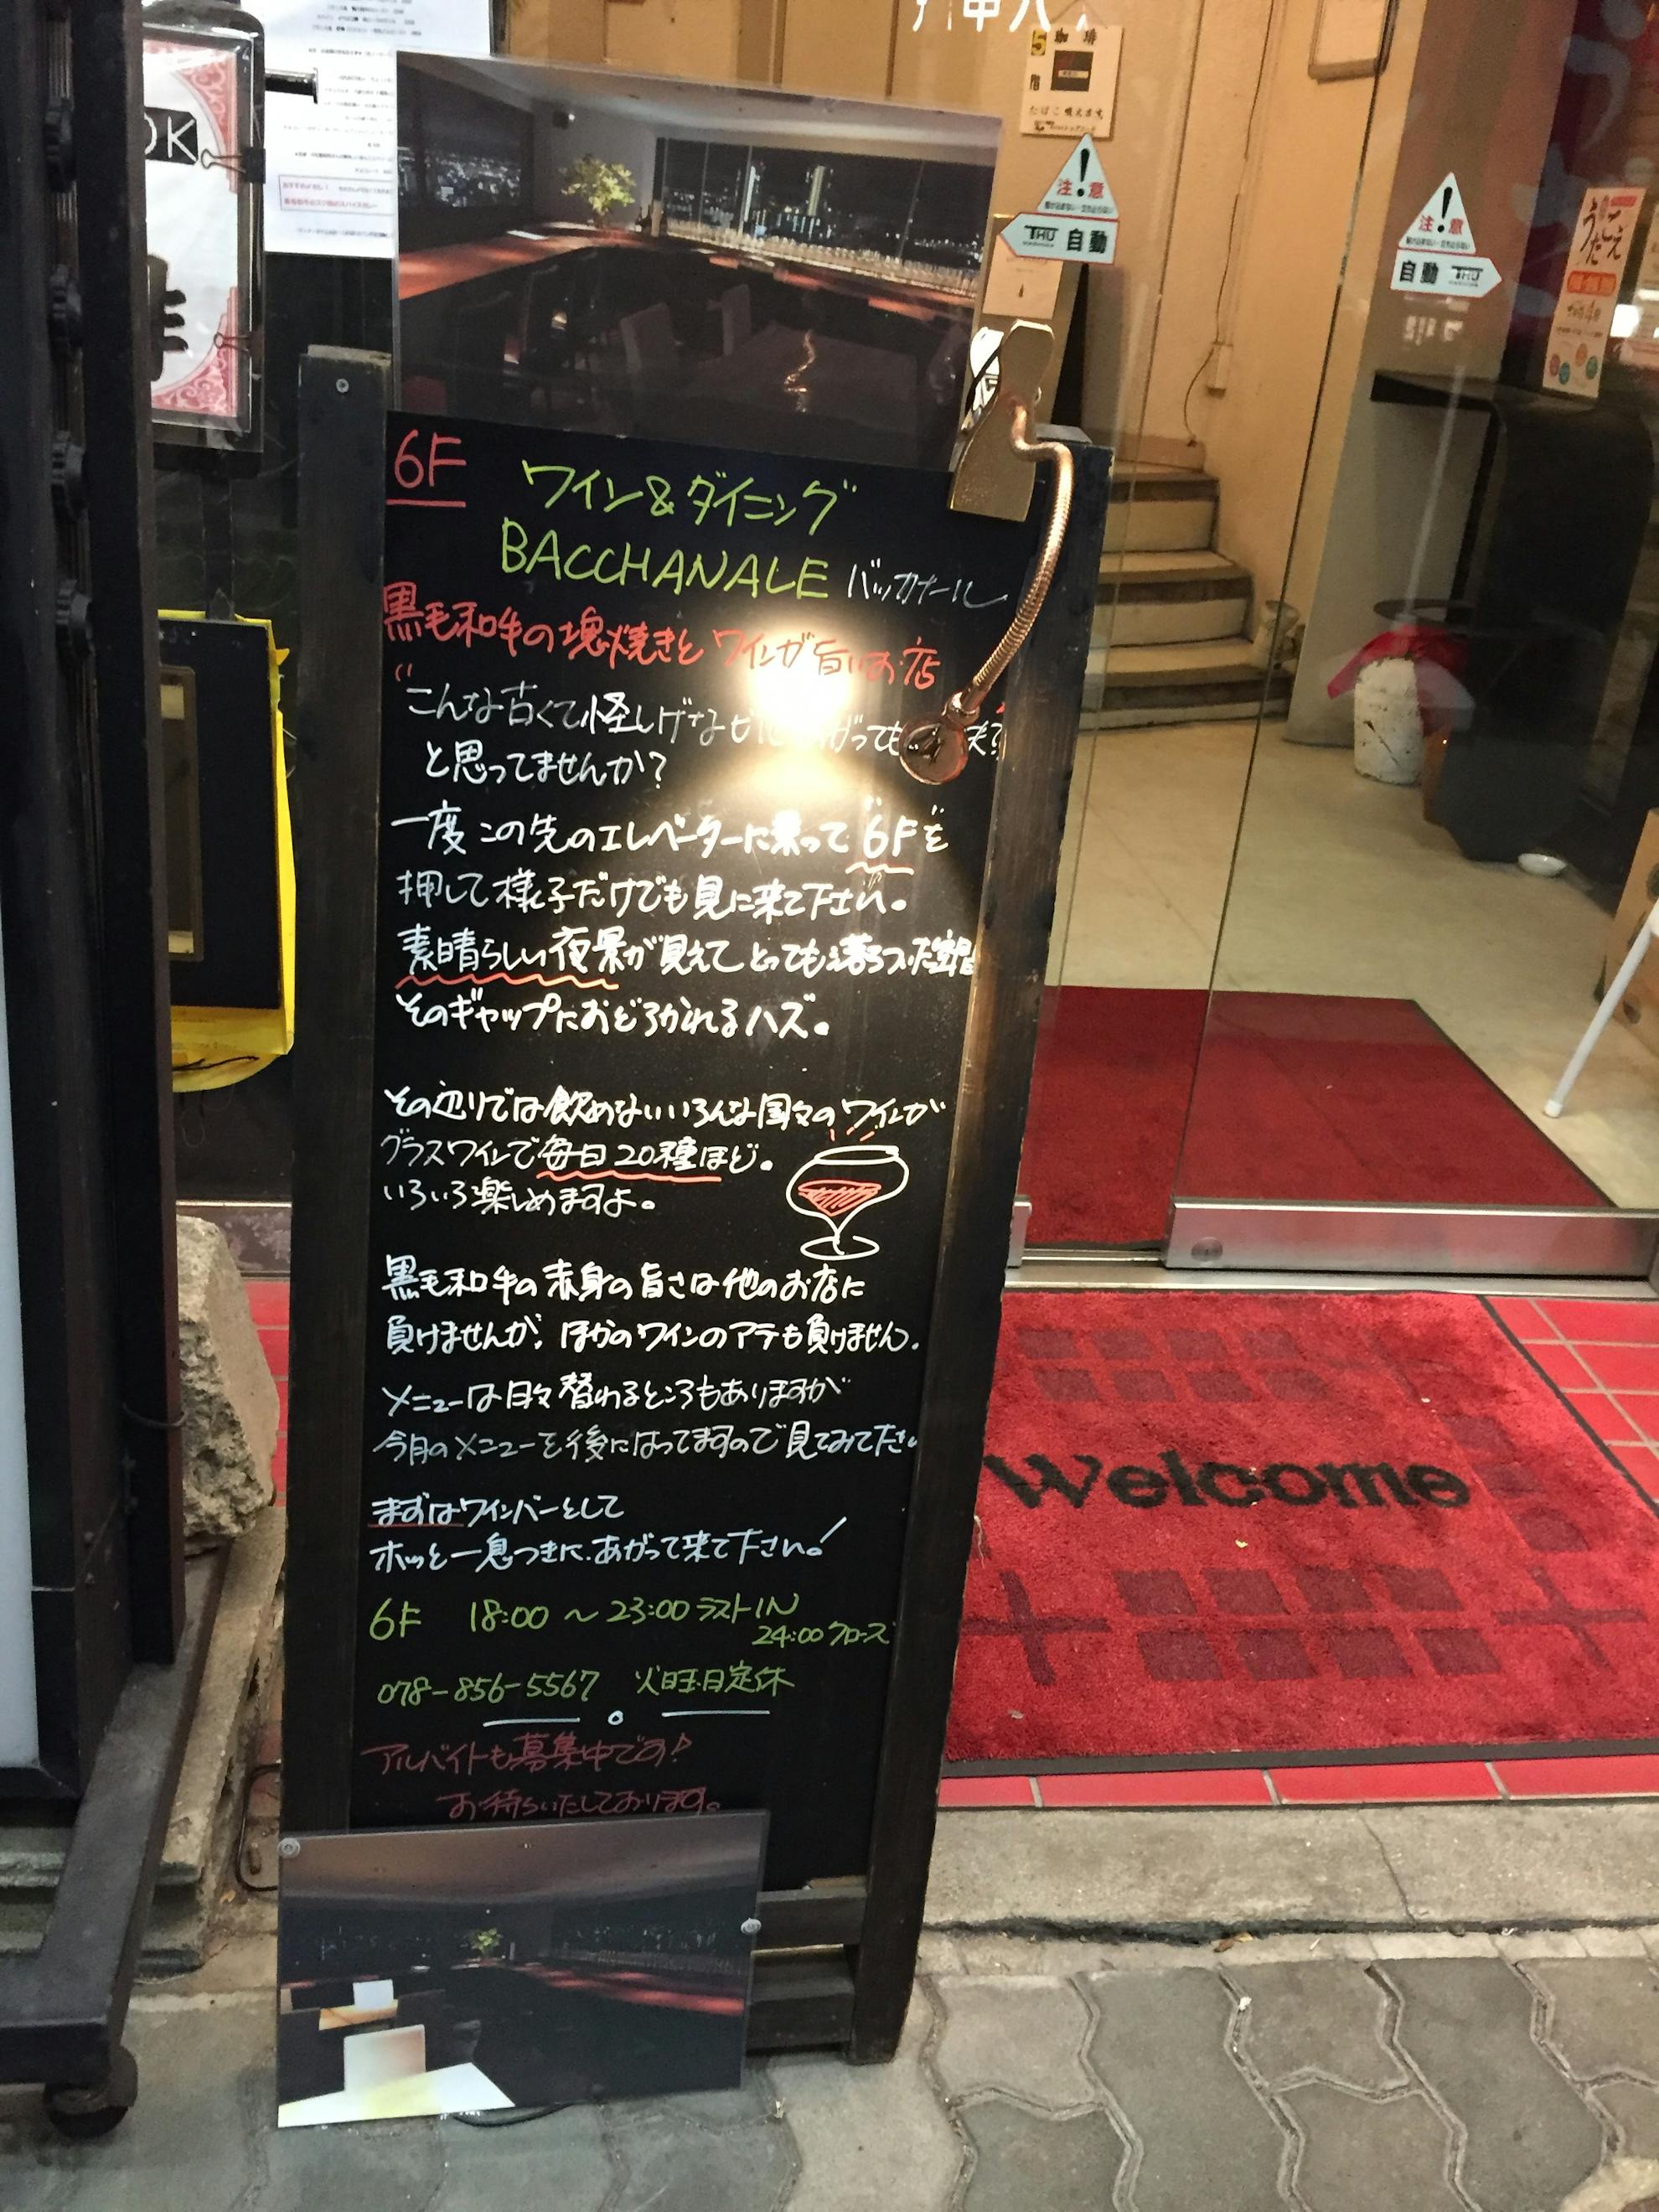 OK
5 珈琲
階
たばこ吸えます
注意
自動
THU
注意
自動
THU
うたごえ
6F ワイン&ダイニング
BACCHANALE バッカナール
黒毛和牛の塊焼きと ワインが旨いお店
"こんな古くて怪しげなビル
がっても
夫?
と思ってませんか?
一度この先のエレベーターに乗って"6F"を
押して様子だけでも見に来て下さい。
素晴らしい夜景が見えてとっても落ちついた空間
そのギャップにおどろかれるハズ。
その辺りでは飲めないいろんな国々のワインが
グラスワインで毎日20種ほど。
いろいろ楽しめますよ。
黒毛和牛の赤身の旨さは他のお店に
負けませんが、ほかのワインのアテも負けません。
メニューは日々替わるところもありますが
今月のメニューを後にはってますので見てみて下さい
まずはワインバーとして
ホッと一息つきに、あがって来て下さい!
6F 18:00 ~ 23:00 ラストIN
24:00 クローズ
078-856-5567 火曜日定休
アルバイトも募集中です!
お待ちいたしております。
Welcome